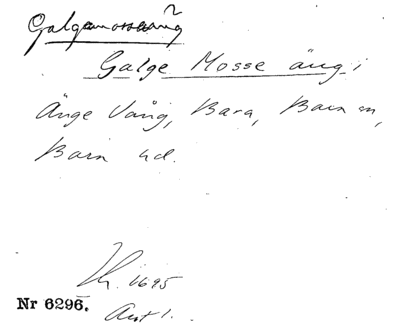 Galgamossäng
Galge Mosse äng i
Änge Vång, Bara, Bara sn,
Bara hd.
Lh. 1695
Nr 6296. Akt 1.